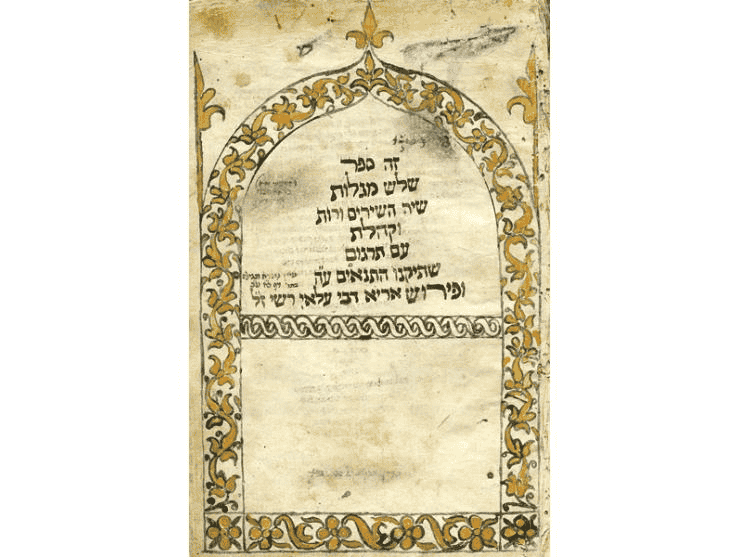 זה ספר
שלש מגלות
שיר השירים ורות
וקהלת
עם תרגום
שתיקנו התנאים ע״ה
ופירוש אריא דבי עלאי רשי ז״ל